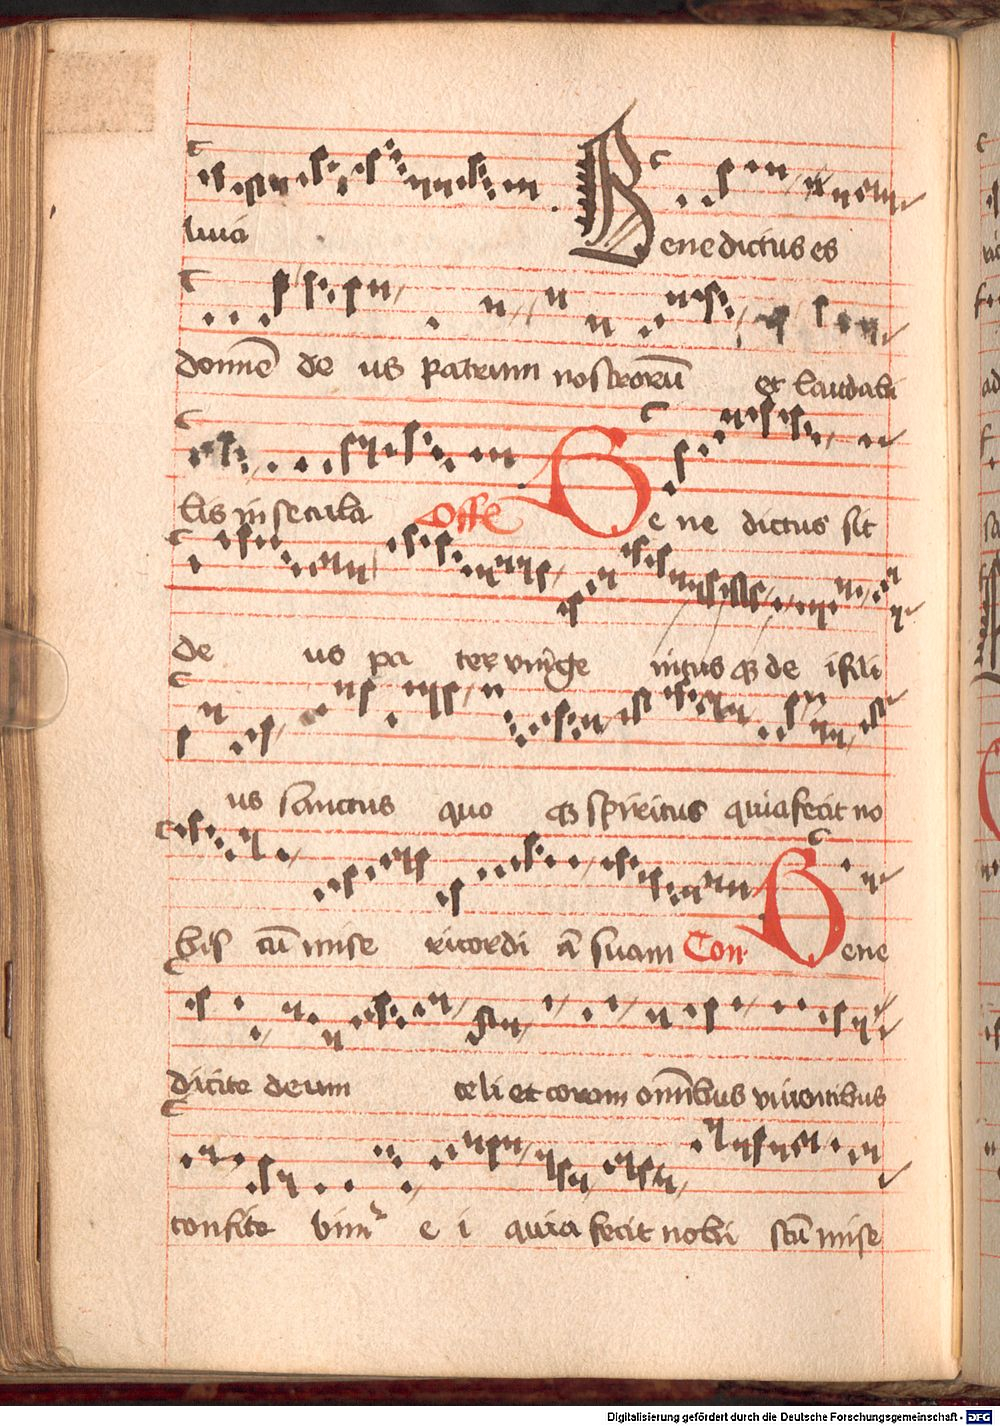 luia Benedictus es
domīe de us patrum nostrorū et laudabi
lis in secula Offe Bene dictus sit
de us pa ter vnige nitus qz de i fili
us sanctus quo qz spiritus quia fecit no
bis cū mise ricordi ā suam Con Bene
dicite deum celi et coram omībus viuentibus
confite bim e i quia fecit nobi scū mise
Digitalisierung gefördert durch die Deutsche Forschungsgemeinschaft - DFG